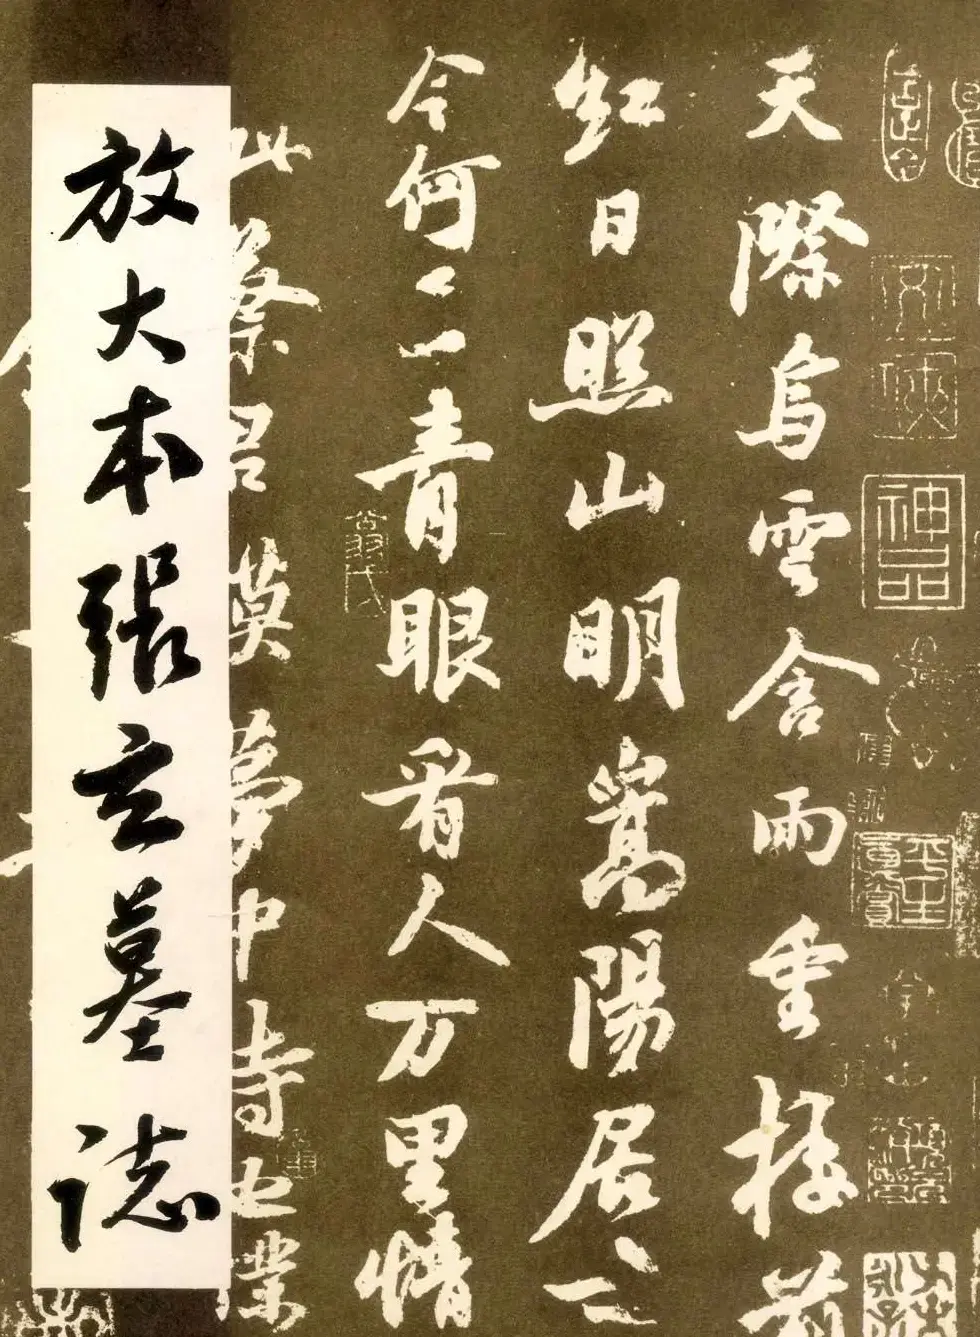 神品
天際烏雲含雨重樓前
紅日照山明嵩陽居士
今何在青眼看人万里情
翁氏
此蔡君謨夢中詩也僕
放大本張玄墓誌